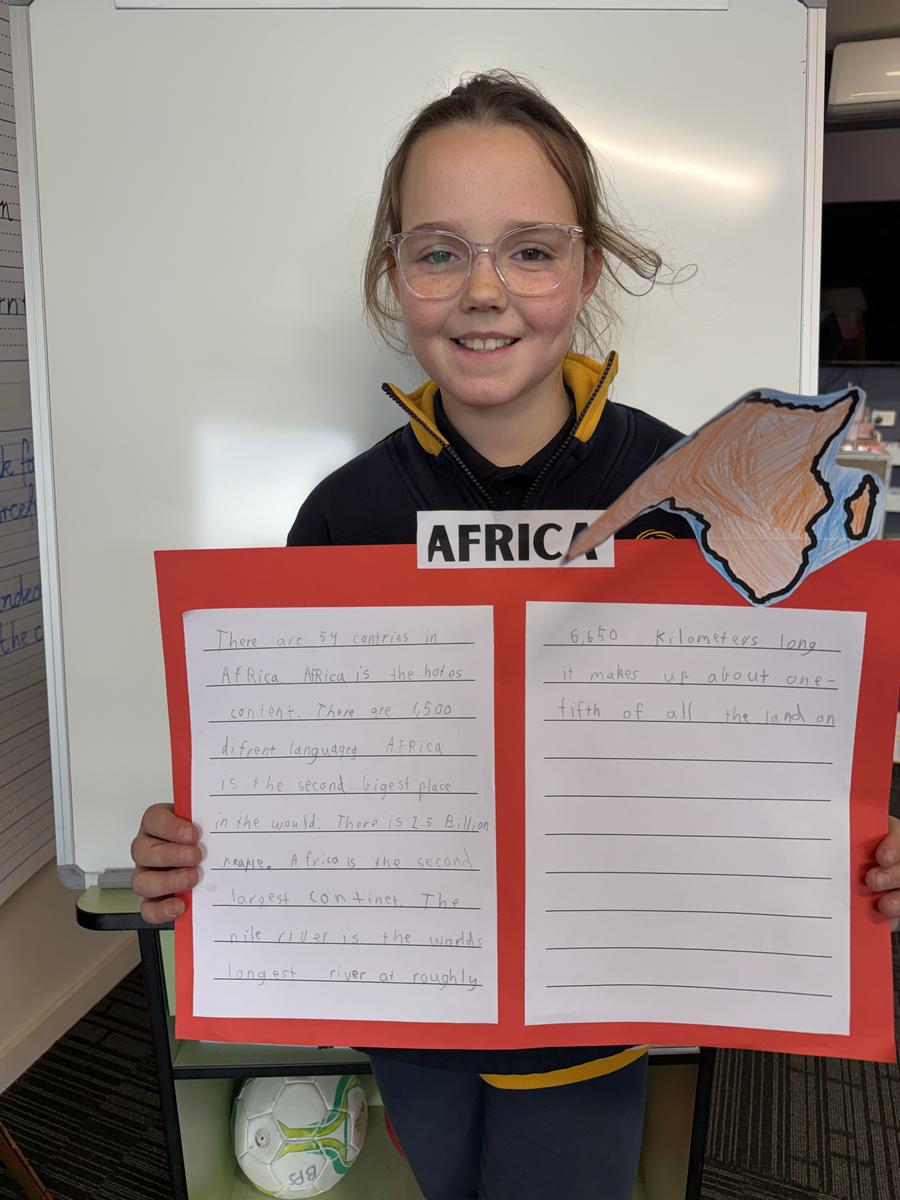 AFRICA
There are 54 contries in
AfRica. AfRica is the hotes
content. There are 1,500
difrent languages AFRICA
is the second bigest place
in the would. There is 1.5 Billion
people. Africa is the second
largest continet. The
nile river is the worlds
longest river at roughly
6,650 Kilometers long
it makes up about one-
fifth of all the land on
BPS